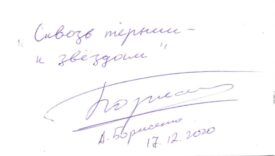 "Сквозь тернии -
к звёздам"
А. Борисенко
17.12.2020